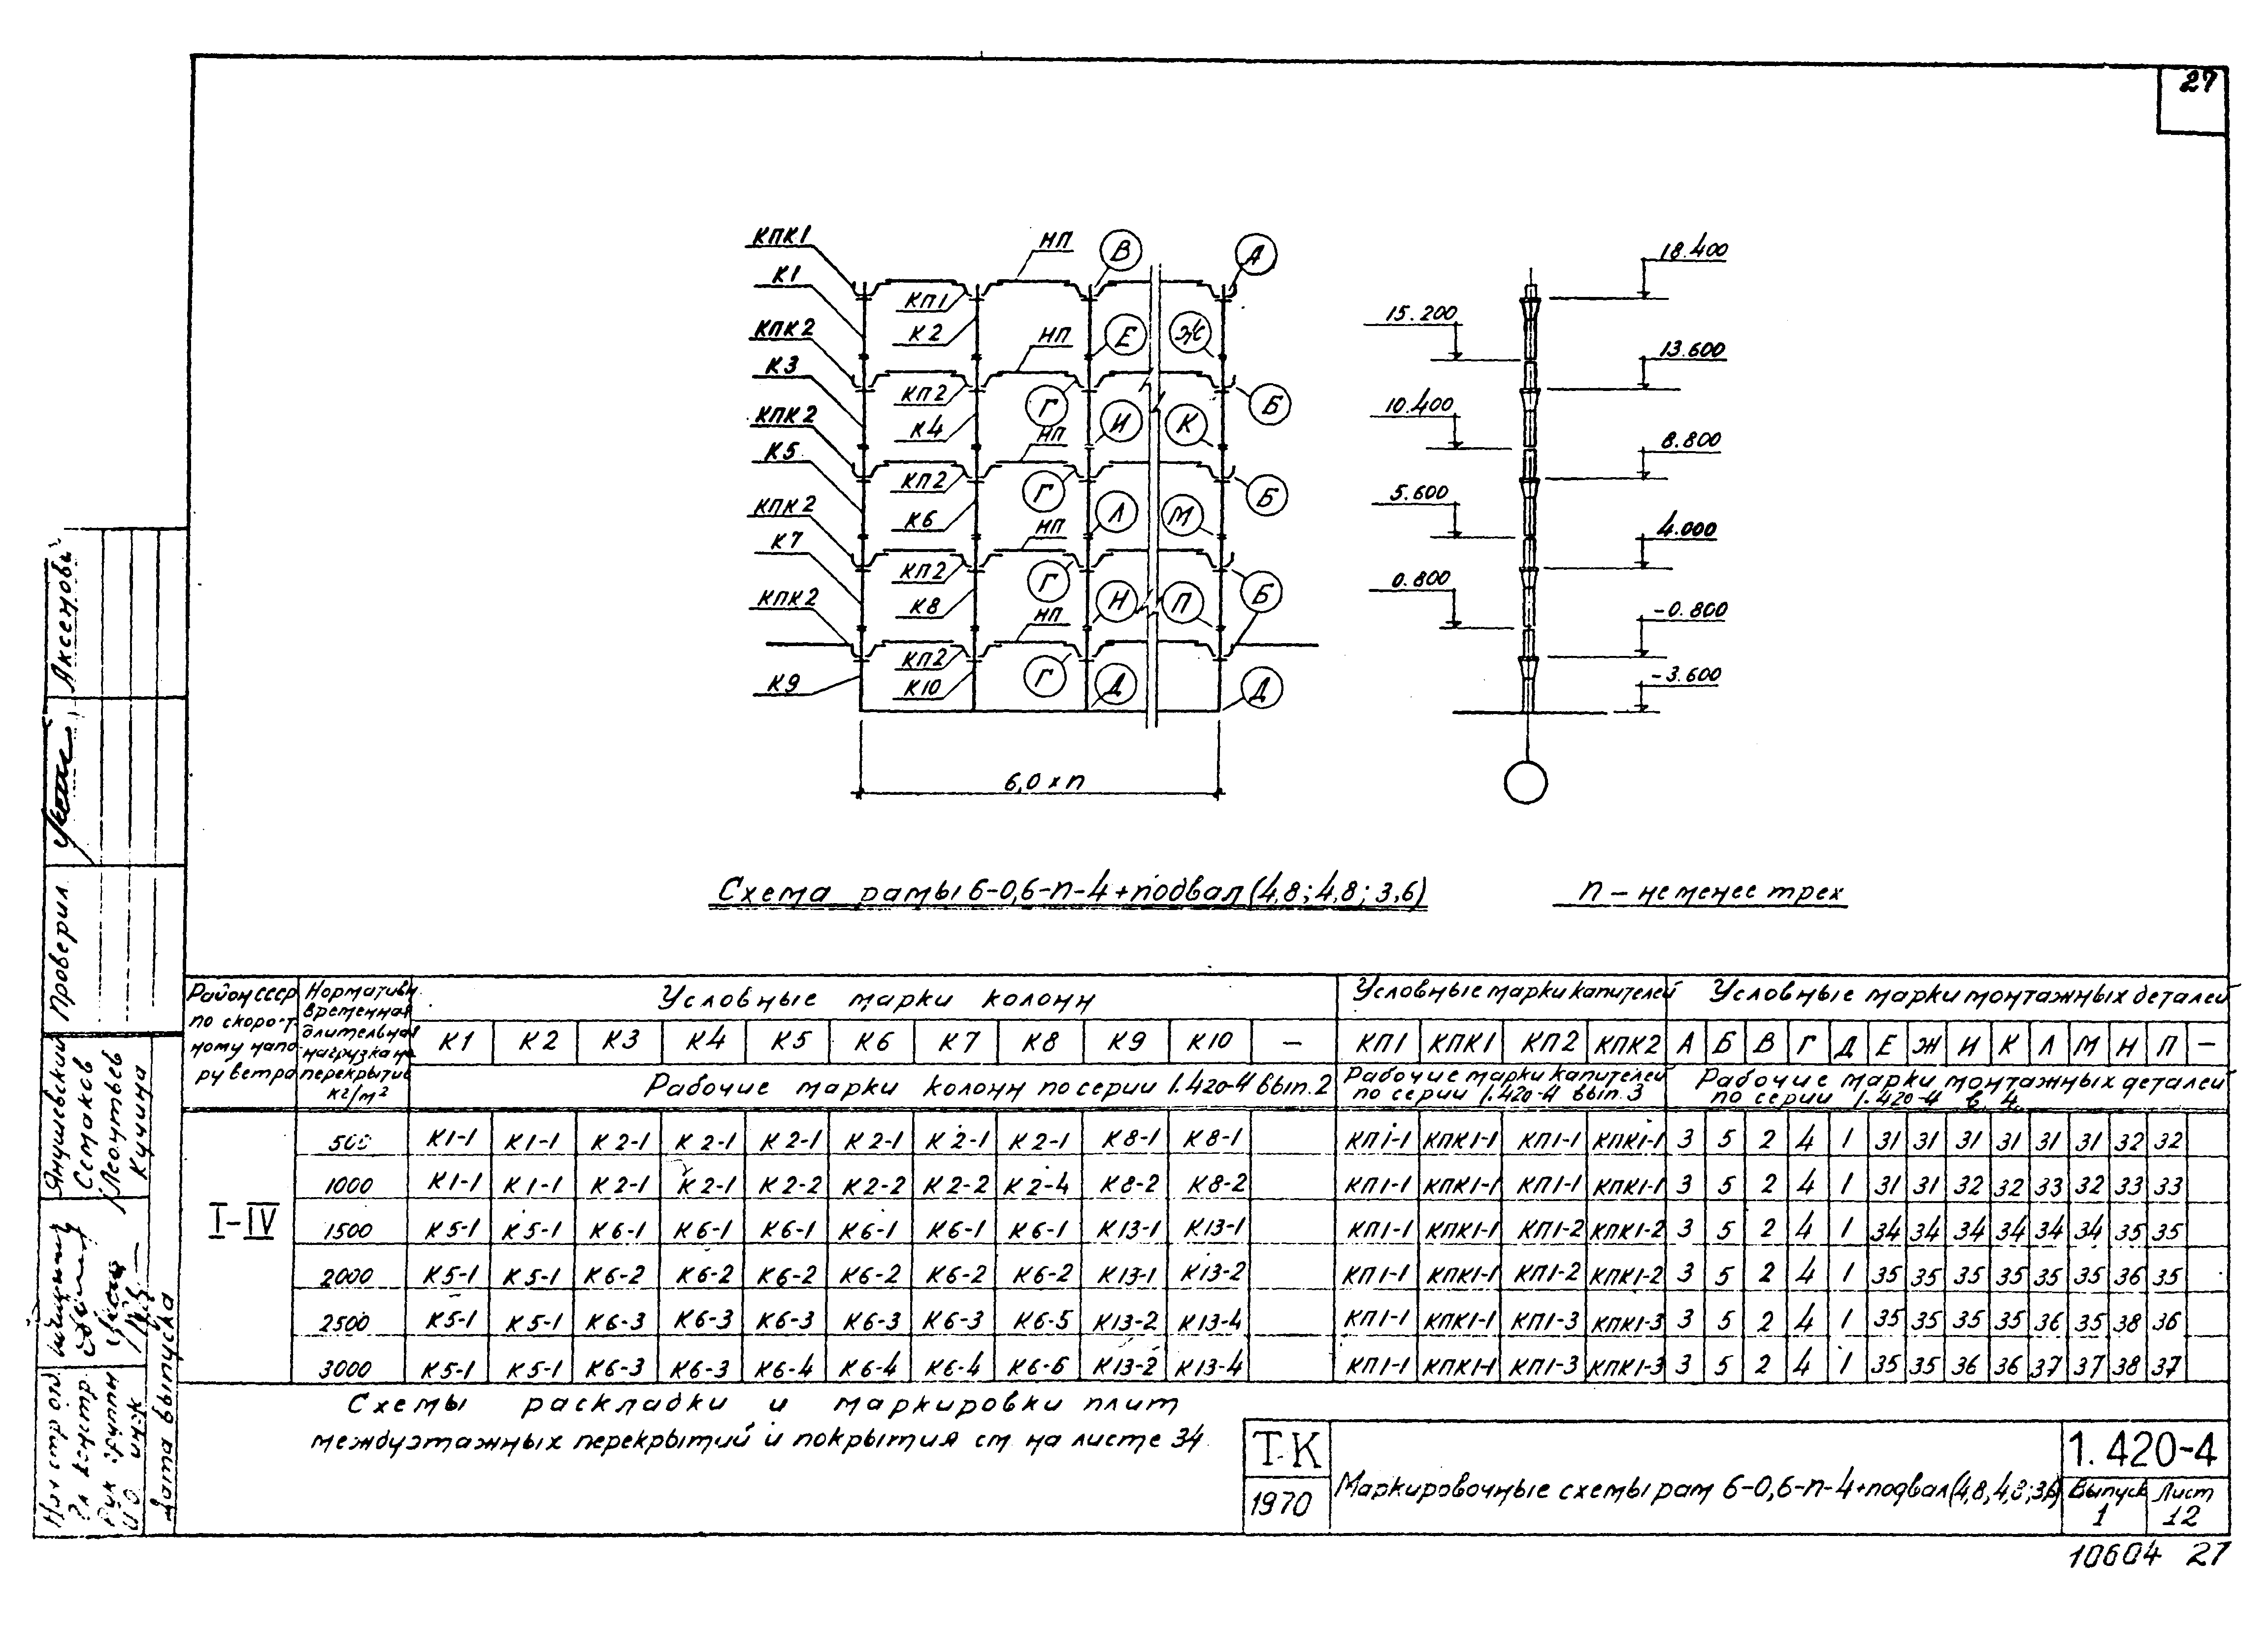 27
КПК1
НП
В
А
18.400
К1
КП1
15.200
КПК2
К2
НП
Е
Ж
13.600
К3
КП2
Г
Б
10.400
КПК2
К4
НП
И
К
8.800
К5
КП2
Г
Б
5.600
КПК2
К6
НП
Л
М
4.000
К7
КП2
Г
Б
0.800
КПК2
К8
НП
Н
П
-0.800
К9
КП2
К10
Г
Д
Д
-3.600
6,0 х п
Схема рамы 6-0,6-п-4+подвал (4,8; 4,8; 3,6)
п – не менее трех
Район СССР по скоростному напору ветра
Нормативн. временная длительная нагрузка на перекрытие кг/м²
Условные марки колонн
Условные марки капителей
Условные марки монтажных деталей
К1 К2 К3 К4 К5 К6 К7 К8 К9 К10 –
КП1 КПК1 КП2 КПК2
А Б В Г Д Е Ж И К Л М Н П –
Рабочие марки колонн по серии 1.420-4 вып. 2
Рабочие марки капителей по серии 1.420-4 вып. 3
Рабочие марки монтажных деталей по серии 1.420-4 в. 4.
I-IV
500 К1-1 К1-1 К2-1 К2-1 К2-1 К2-1 К2-1 К2-1 К8-1 К8-1 КП1-1 КПК1-1 КП1-1 КПК1-1 3 5 2 4 1 31 31 31 31 31 31 32 32
1000 К1-1 К1-1 К2-1 К2-1 К2-2 К2-2 К2-2 К2-4 К8-2 К8-2 КП1-1 КПК1-1 КП1-1 КПК1-1 3 5 2 4 1 31 31 32 32 33 32 33 33
1500 К5-1 К5-1 К6-1 К6-1 К6-1 К6-1 К6-1 К6-1 К13-1 К13-1 КП1-1 КПК1-1 КП1-2 КПК1-2 3 5 2 4 1 34 34 34 34 34 34 35 35
2000 К5-1 К5-1 К6-2 К6-2 К6-2 К6-2 К6-2 К6-2 К13-1 К13-2 КП1-1 КПК1-1 КП1-2 КПК1-2 3 5 2 4 1 35 35 35 35 35 35 36 35
2500 К5-1 К5-1 К6-3 К6-3 К6-3 К6-3 К6-3 К6-5 К13-2 К13-4 КП1-1 КПК1-1 КП1-3 КПК1-3 3 5 2 4 1 35 35 35 35 36 35 38 36
3000 К5-1 К5-1 К6-3 К6-3 К6-4 К6-4 К6-4 К6-6 К13-2 К13-4 КП1-1 КПК1-1 КП1-3 КПК1-3 3 5 2 4 1 35 35 36 36 37 37 38 37
Схемы раскладки и маркировки плит
междуэтажных перекрытий и покрытия см. на листе 34
ТК
1970
Маркировочные схемы рам 6-0,6-п-4+подвал (4,8, 4,8; 3,6)
1.420-4
Выпуск
1
Лист
12
10604 27
Проверил
Аксенова
Нач стр отд.
Янушевский
Гл. констр.
Семаков
Рук. группы
Леонтьев
И О инж
Кучина
Дата выпуска